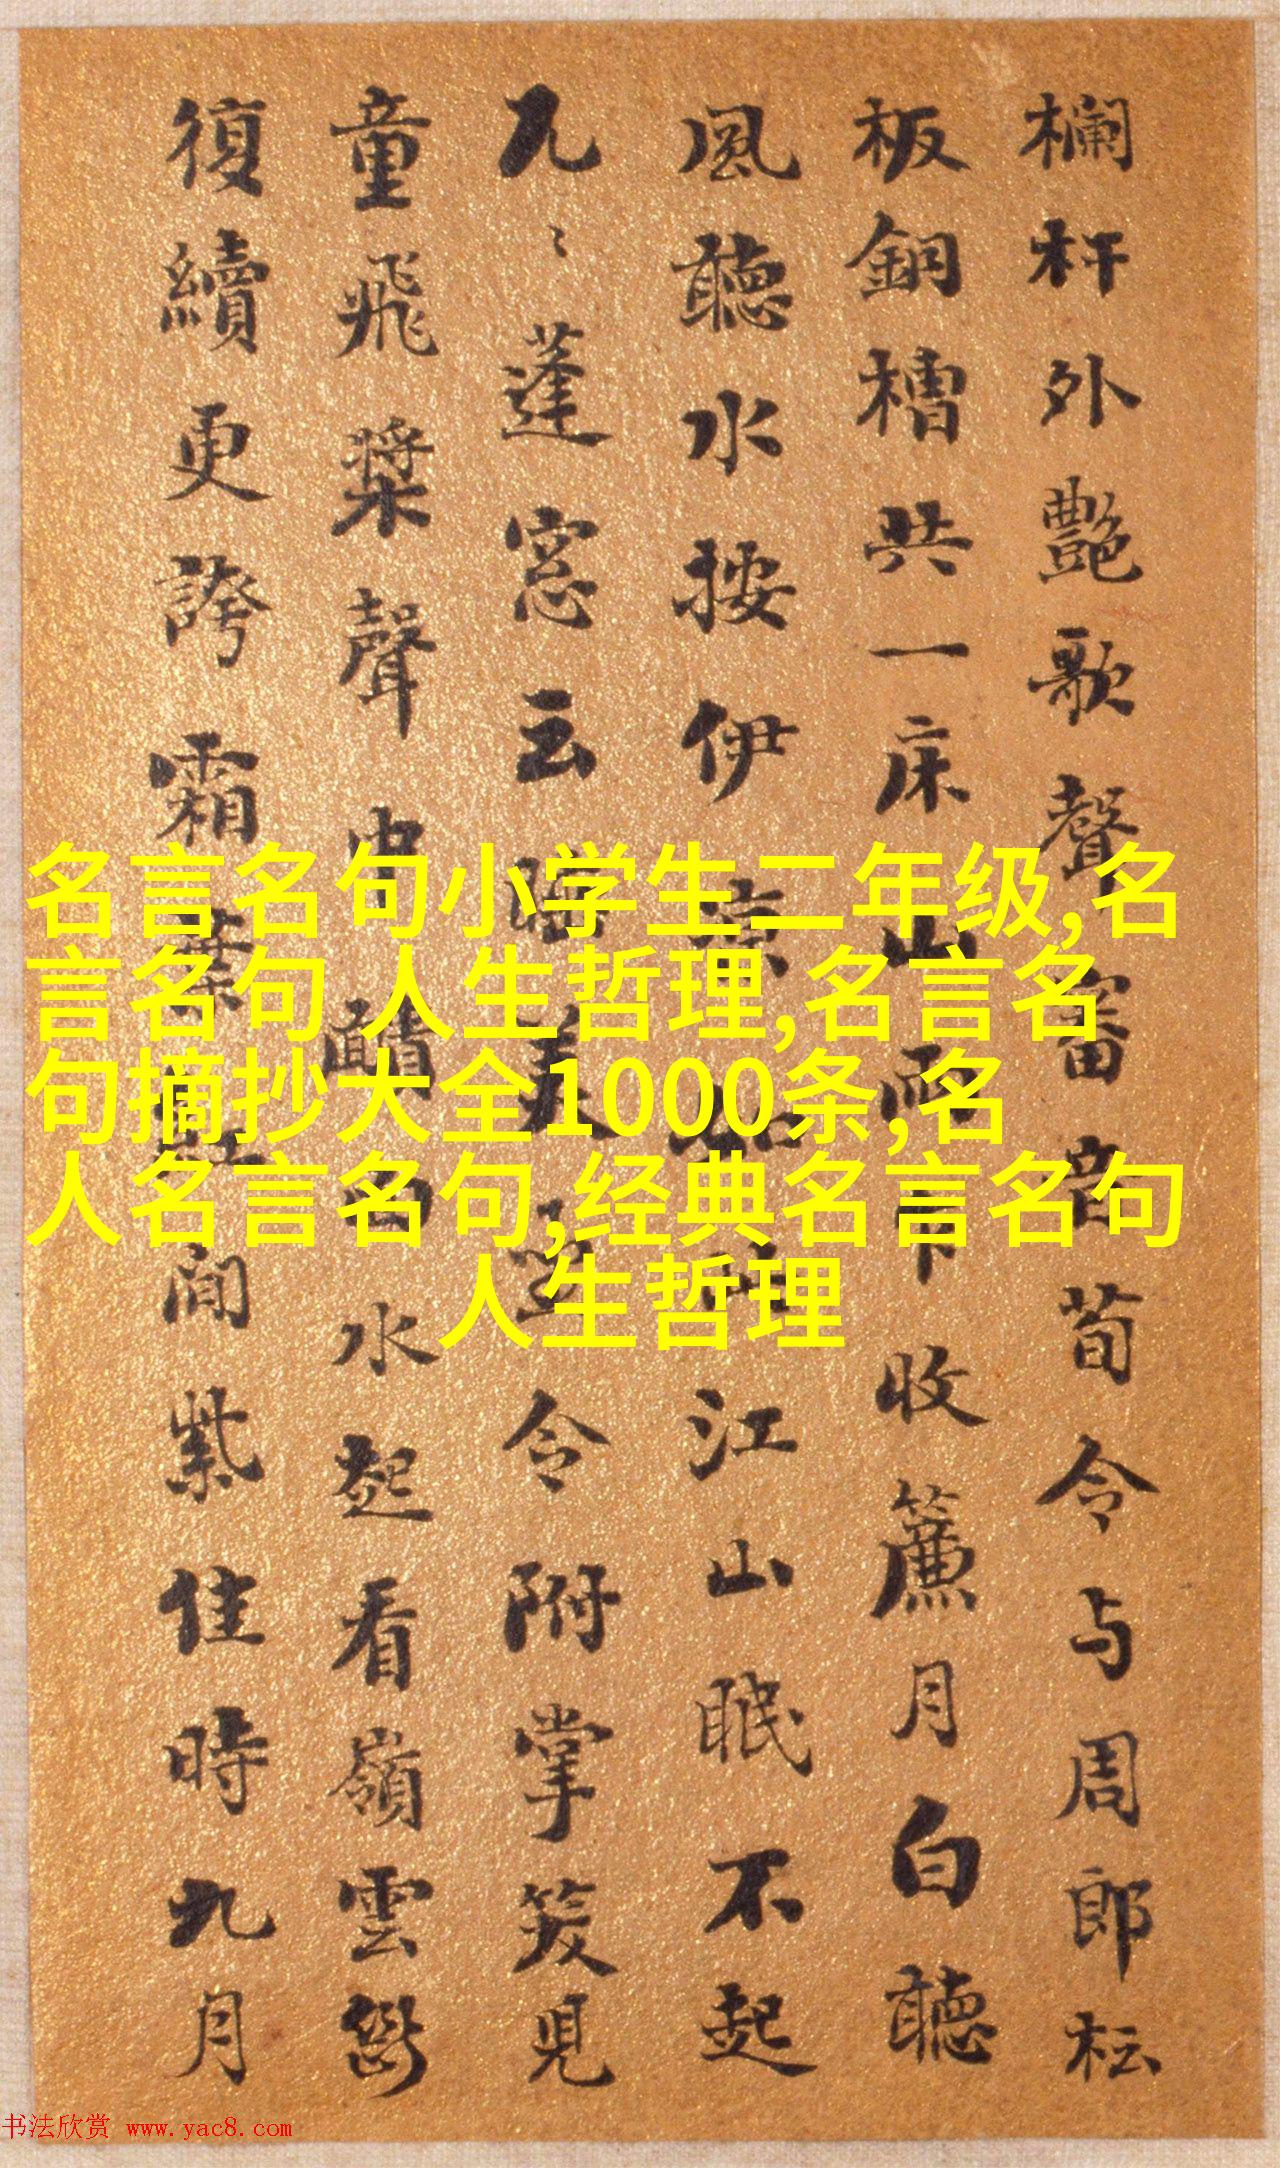 欄杆外艷歌聲審音荀令与周郎枟
板銅槽共一床山雨下收簾月白聽
風聽水按伊涼如此江山眠不起
兀〻蓬窓云睡美亟令附掌笑見
童飛槳聲中面水起看嶺雲
復續更誇霜葉紅間紫佳時九月
名言名句小学生二年级,名
言名句 人生哲理,名言名
句摘抄大全1000条,名
人名言名句,经典名言名句
人生哲理
书法欣赏 www.yac8.com